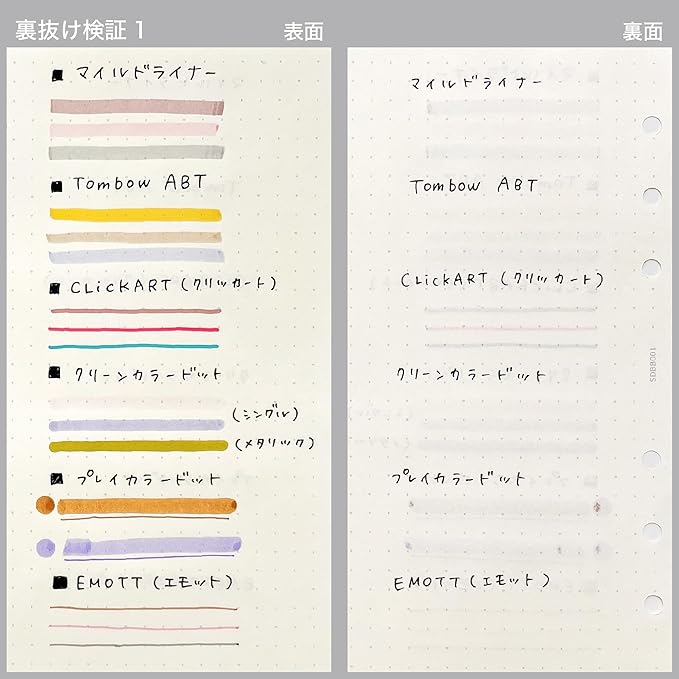 裏抜け検証 1
表面
■ マイルドライナー
■ Tombow ABT
■ CLiCKART (クリッカート)
■ クリーンカラードット
(シングル)
(メタリック)
■ プレイカラードット
■ EMOTT (エモット)
裏面
マイルドライナー
Tombow ABT
CLiCKART (クリッカート)
クリーンカラードット
プレイカラードット
EMOTT (エモット)
SDBB001